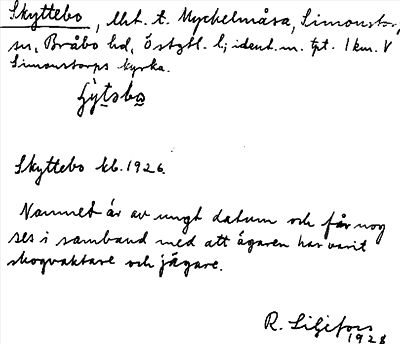 Skyttebo, lht. t. Myckelmåsa, Simonstorps
sn, Bråbo hd, Östgtl. l; ident. m. tpt. 1 km. V
Simonstorps kyrka.
Skyttebo kb. 1926.
Namnet är av ungt datum och får nog
ses i samband med att ägaren har varit
skogvaktare och jägare.
R. Liljefors
1928